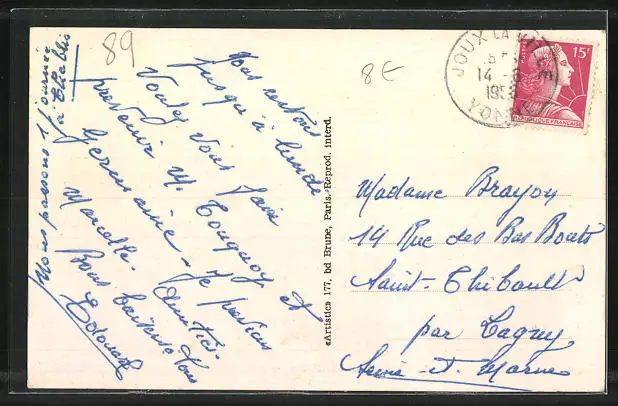 89
8E
Nous passons 1 journée
à Chablis
Nous restons
jusqu'à lundi
Voulez vous faire
prévenir M. Touquoy et
Germaine - Je préviens
Marcelle. Amitiés.
Bons baisers à tous
Edouard
«Artistic» 177, bd Brune, Paris. Reprod. interd.
JOUX LA VILLE
14-8
195
YONNE
15F
POSTES
REPUBLIQUE FRANÇAISE
Madame Brayon
14 Rue des Bas Bouts
Saint-Thibault
par Lagny
Seine-et-Marne